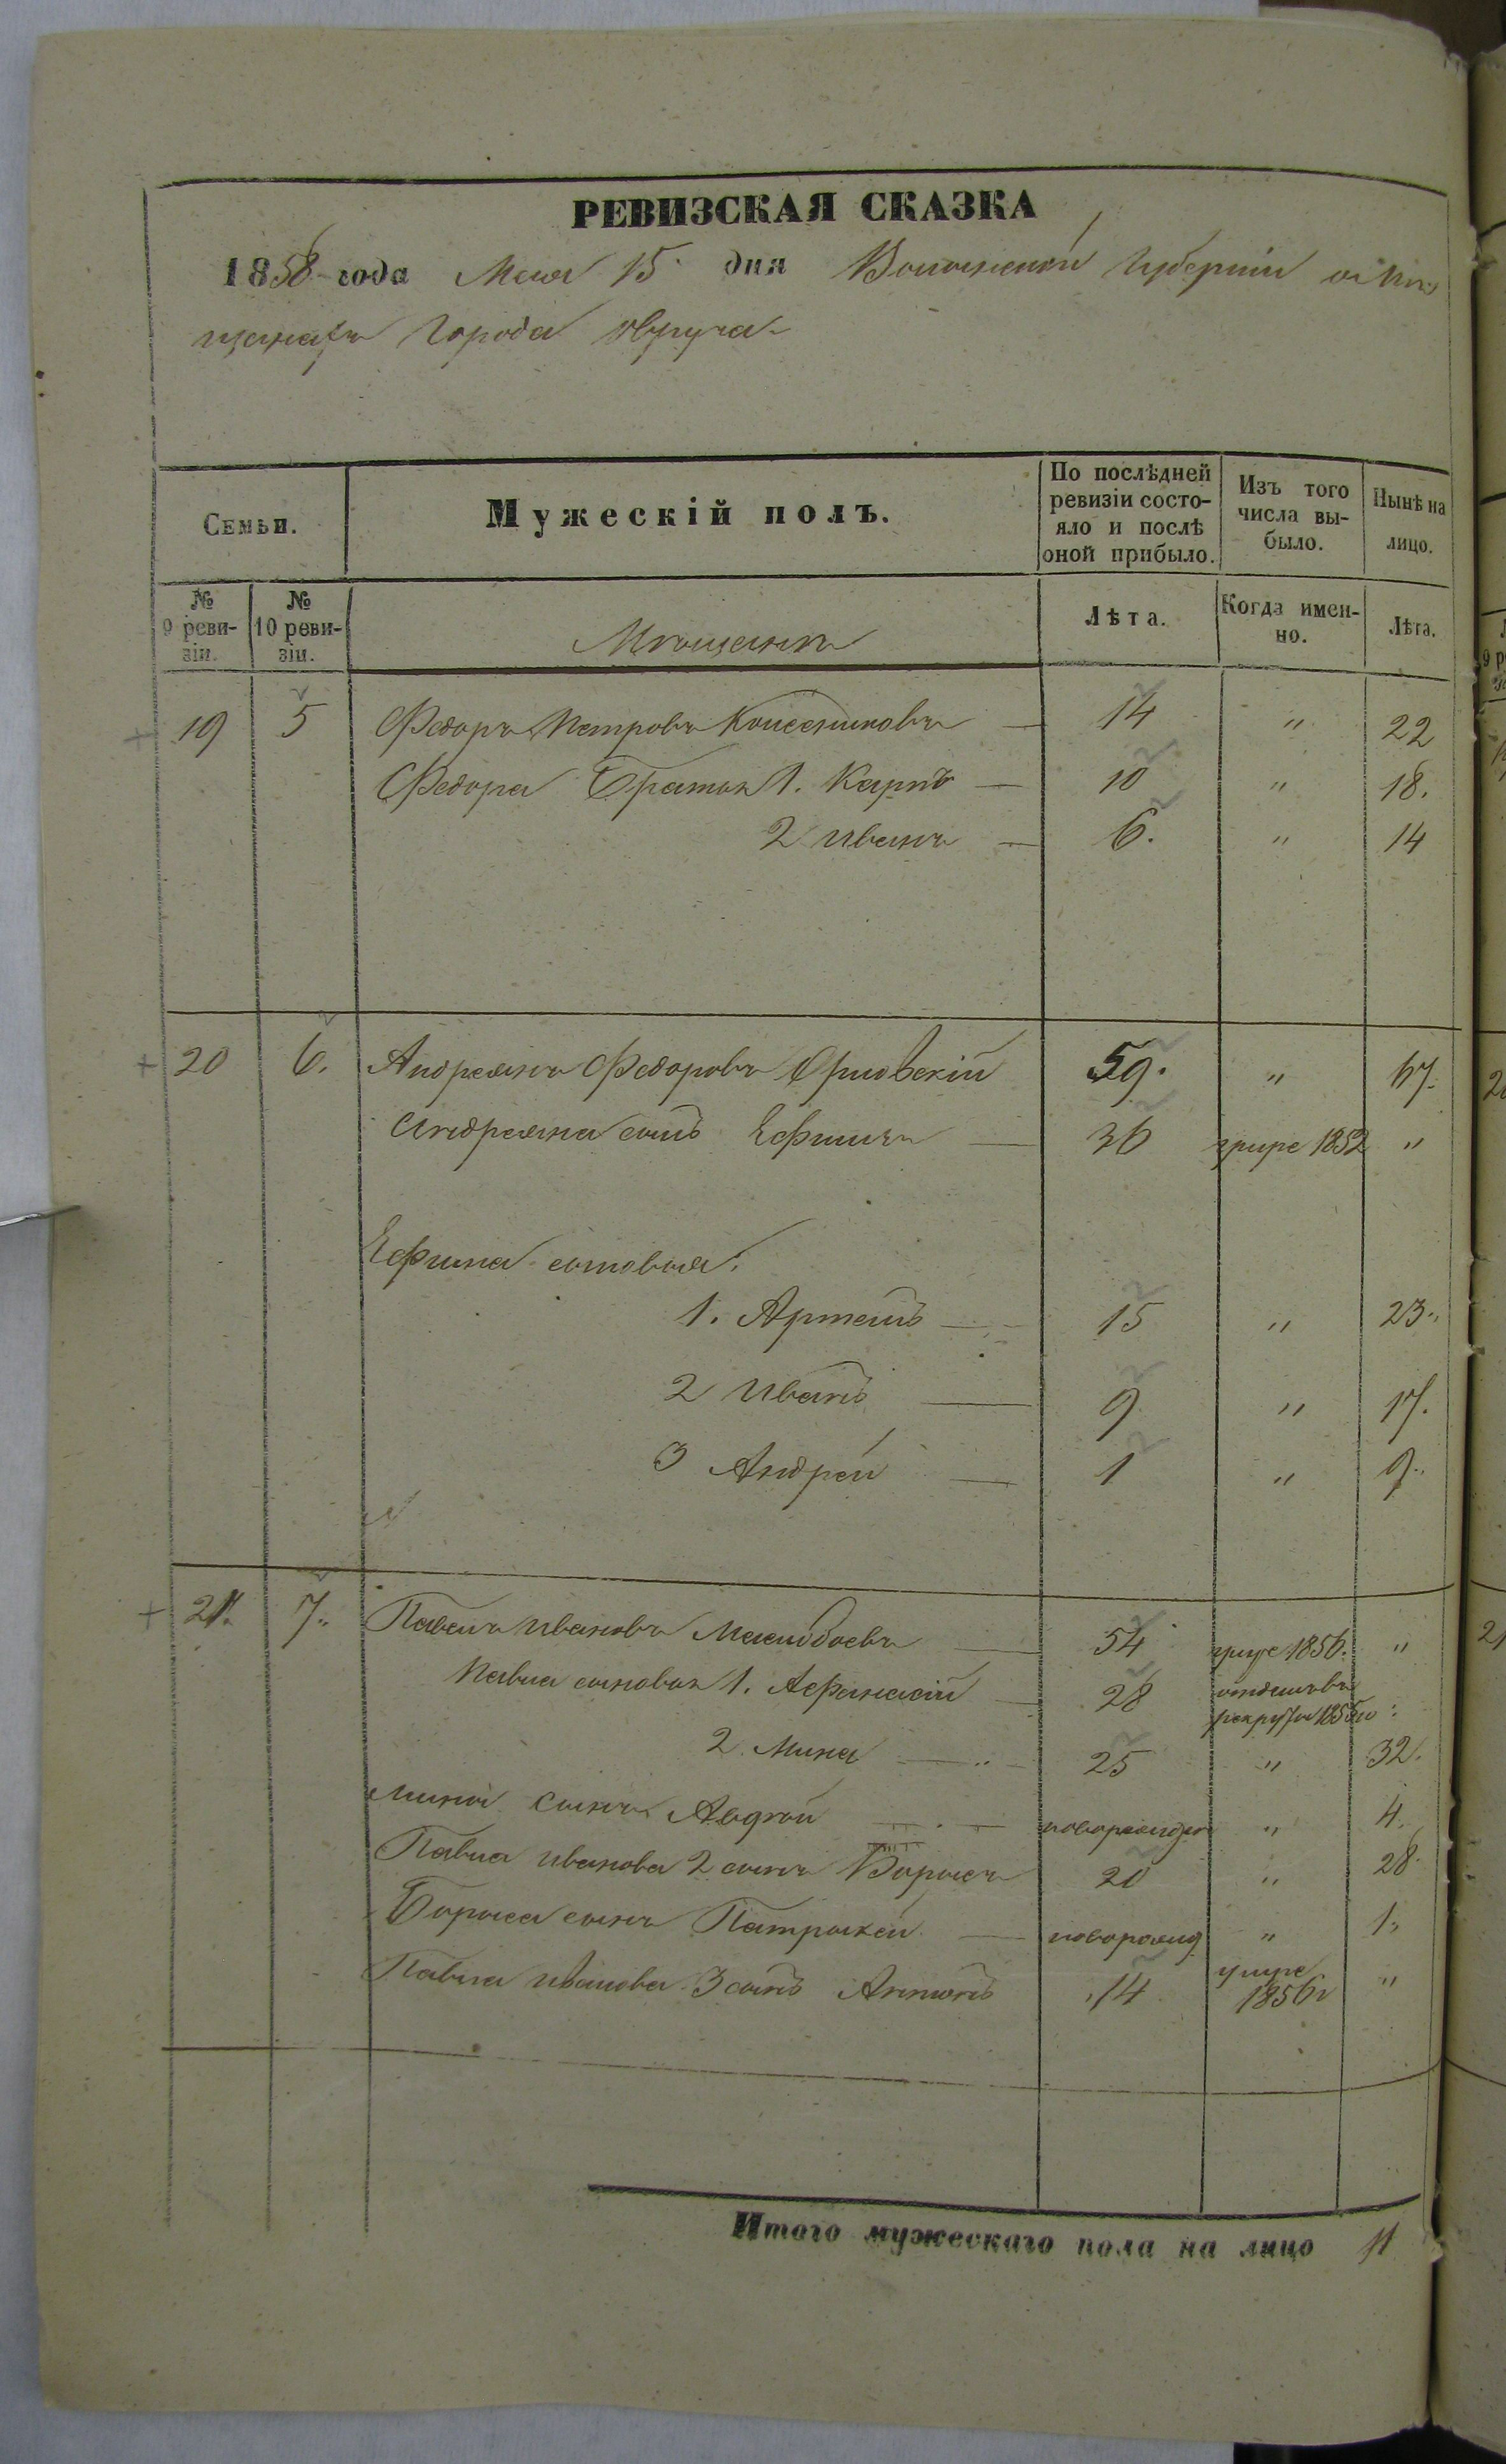 РЕВИЗСКАЯ СКАЗКА
1858 года Мая 15 дня Волынской Губерніи о мѣ-
щанахъ Города Овруча
Семьи.
Мужескій полъ.
По послѣдней ревизіи состояло и послѣ оной прибыло.
Изъ того числа выбыло.
Нынѣ на лицо.
№ 9 ревизіи.
№ 10 ревизіи.
Мѣщанъ
Лѣта.
Когда именно.
Лѣта.
19 5 Федоръ Петровъ Колесниковъ — 14 " 22
Федора Братья 1. Карпъ — 10 " 18.
2 Иванъ — 6. " 14
20 6. Андреянъ Федоровъ Орловскій 59. " 67.
Андреяна сынъ Ефимъ — 36 умре 1852 "
Ефима сыновья.
1. Артемъ — 15 " 23.
2 Иванъ — 9 " 17.
3 Андрей — 1 " 9.
21. 7. Павелъ Ивановъ — 54 умре 1856. "
Павла сыновья 1. Афанасій — 28 отданъ въ рекруты 1855го
2. Мина — 25 " 32.
Мины сынъ Авдей — новорожден " 4.
Павла Иванова 2 сынъ Борисъ 20 " 28.
Бориса сынъ Патрикей — новорожд " 1.
Павла Иванова 3 сынъ Антонъ 14 умре 1856г "
Итого мужескаго пола на лицо 11